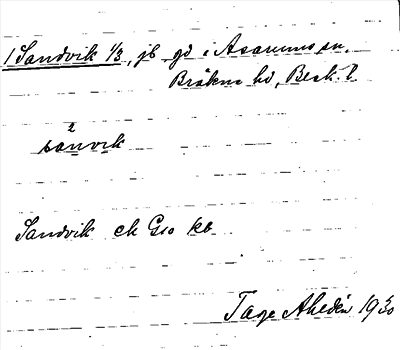 1 Sandvik 1/3, jb gd i Asarums sn,
Bräkne hd, Blek. l.
2
sanvik
Sandvik ek G10 kb
Tage Ahldén 1930